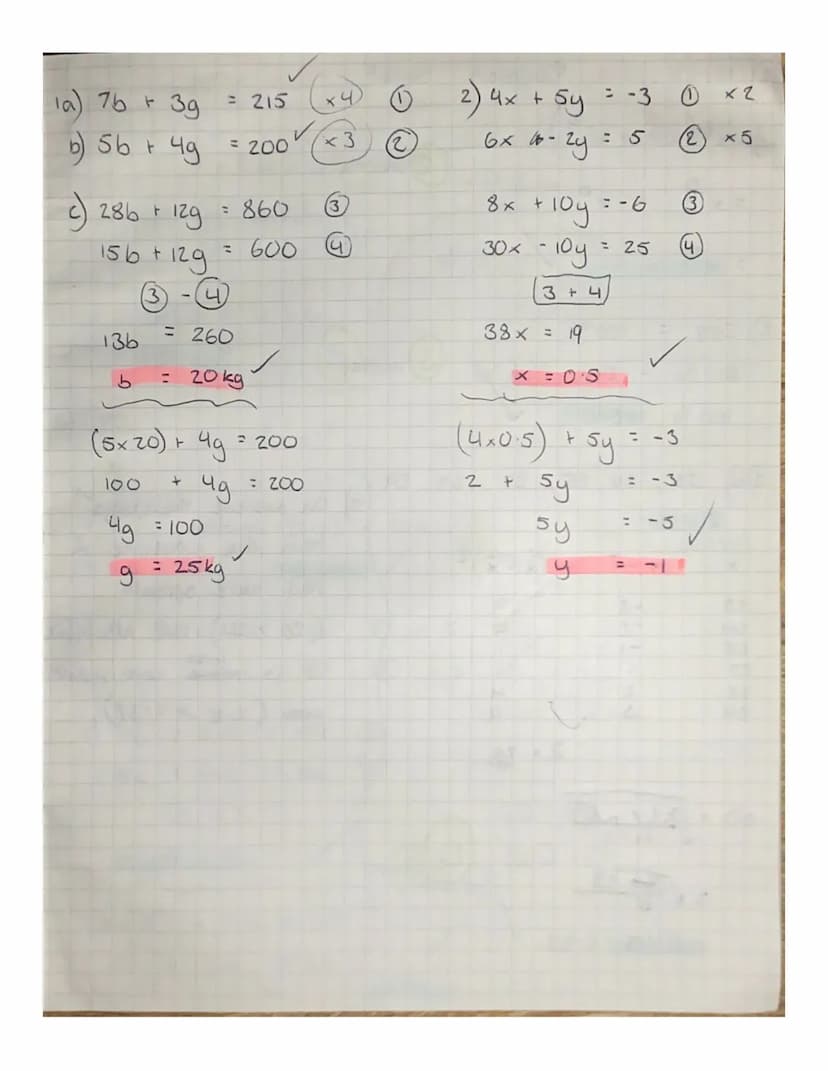 1a) 7b + 3g = 215 (x4) ①
b) 5b + 4g = 200 (x3) ②
c) 28b + 12g = 860 ③
15b + 12g = 600 ④
③ - ④
13b = 260
b = 20kg
(5x20) + 4g = 200
100 + 4g = 200
4g = 100
g = 25kg
2) 4x + 5y = -3 ① x2
6x - 2y = 5 ② x5
8x + 10y = -6 ③
30x - 10y = 25 ④
3 + 4
38x = 19
x = 0.5
(4x0.5) + 5y = -3
2 + 5y = -3
5y = -5
y = -1